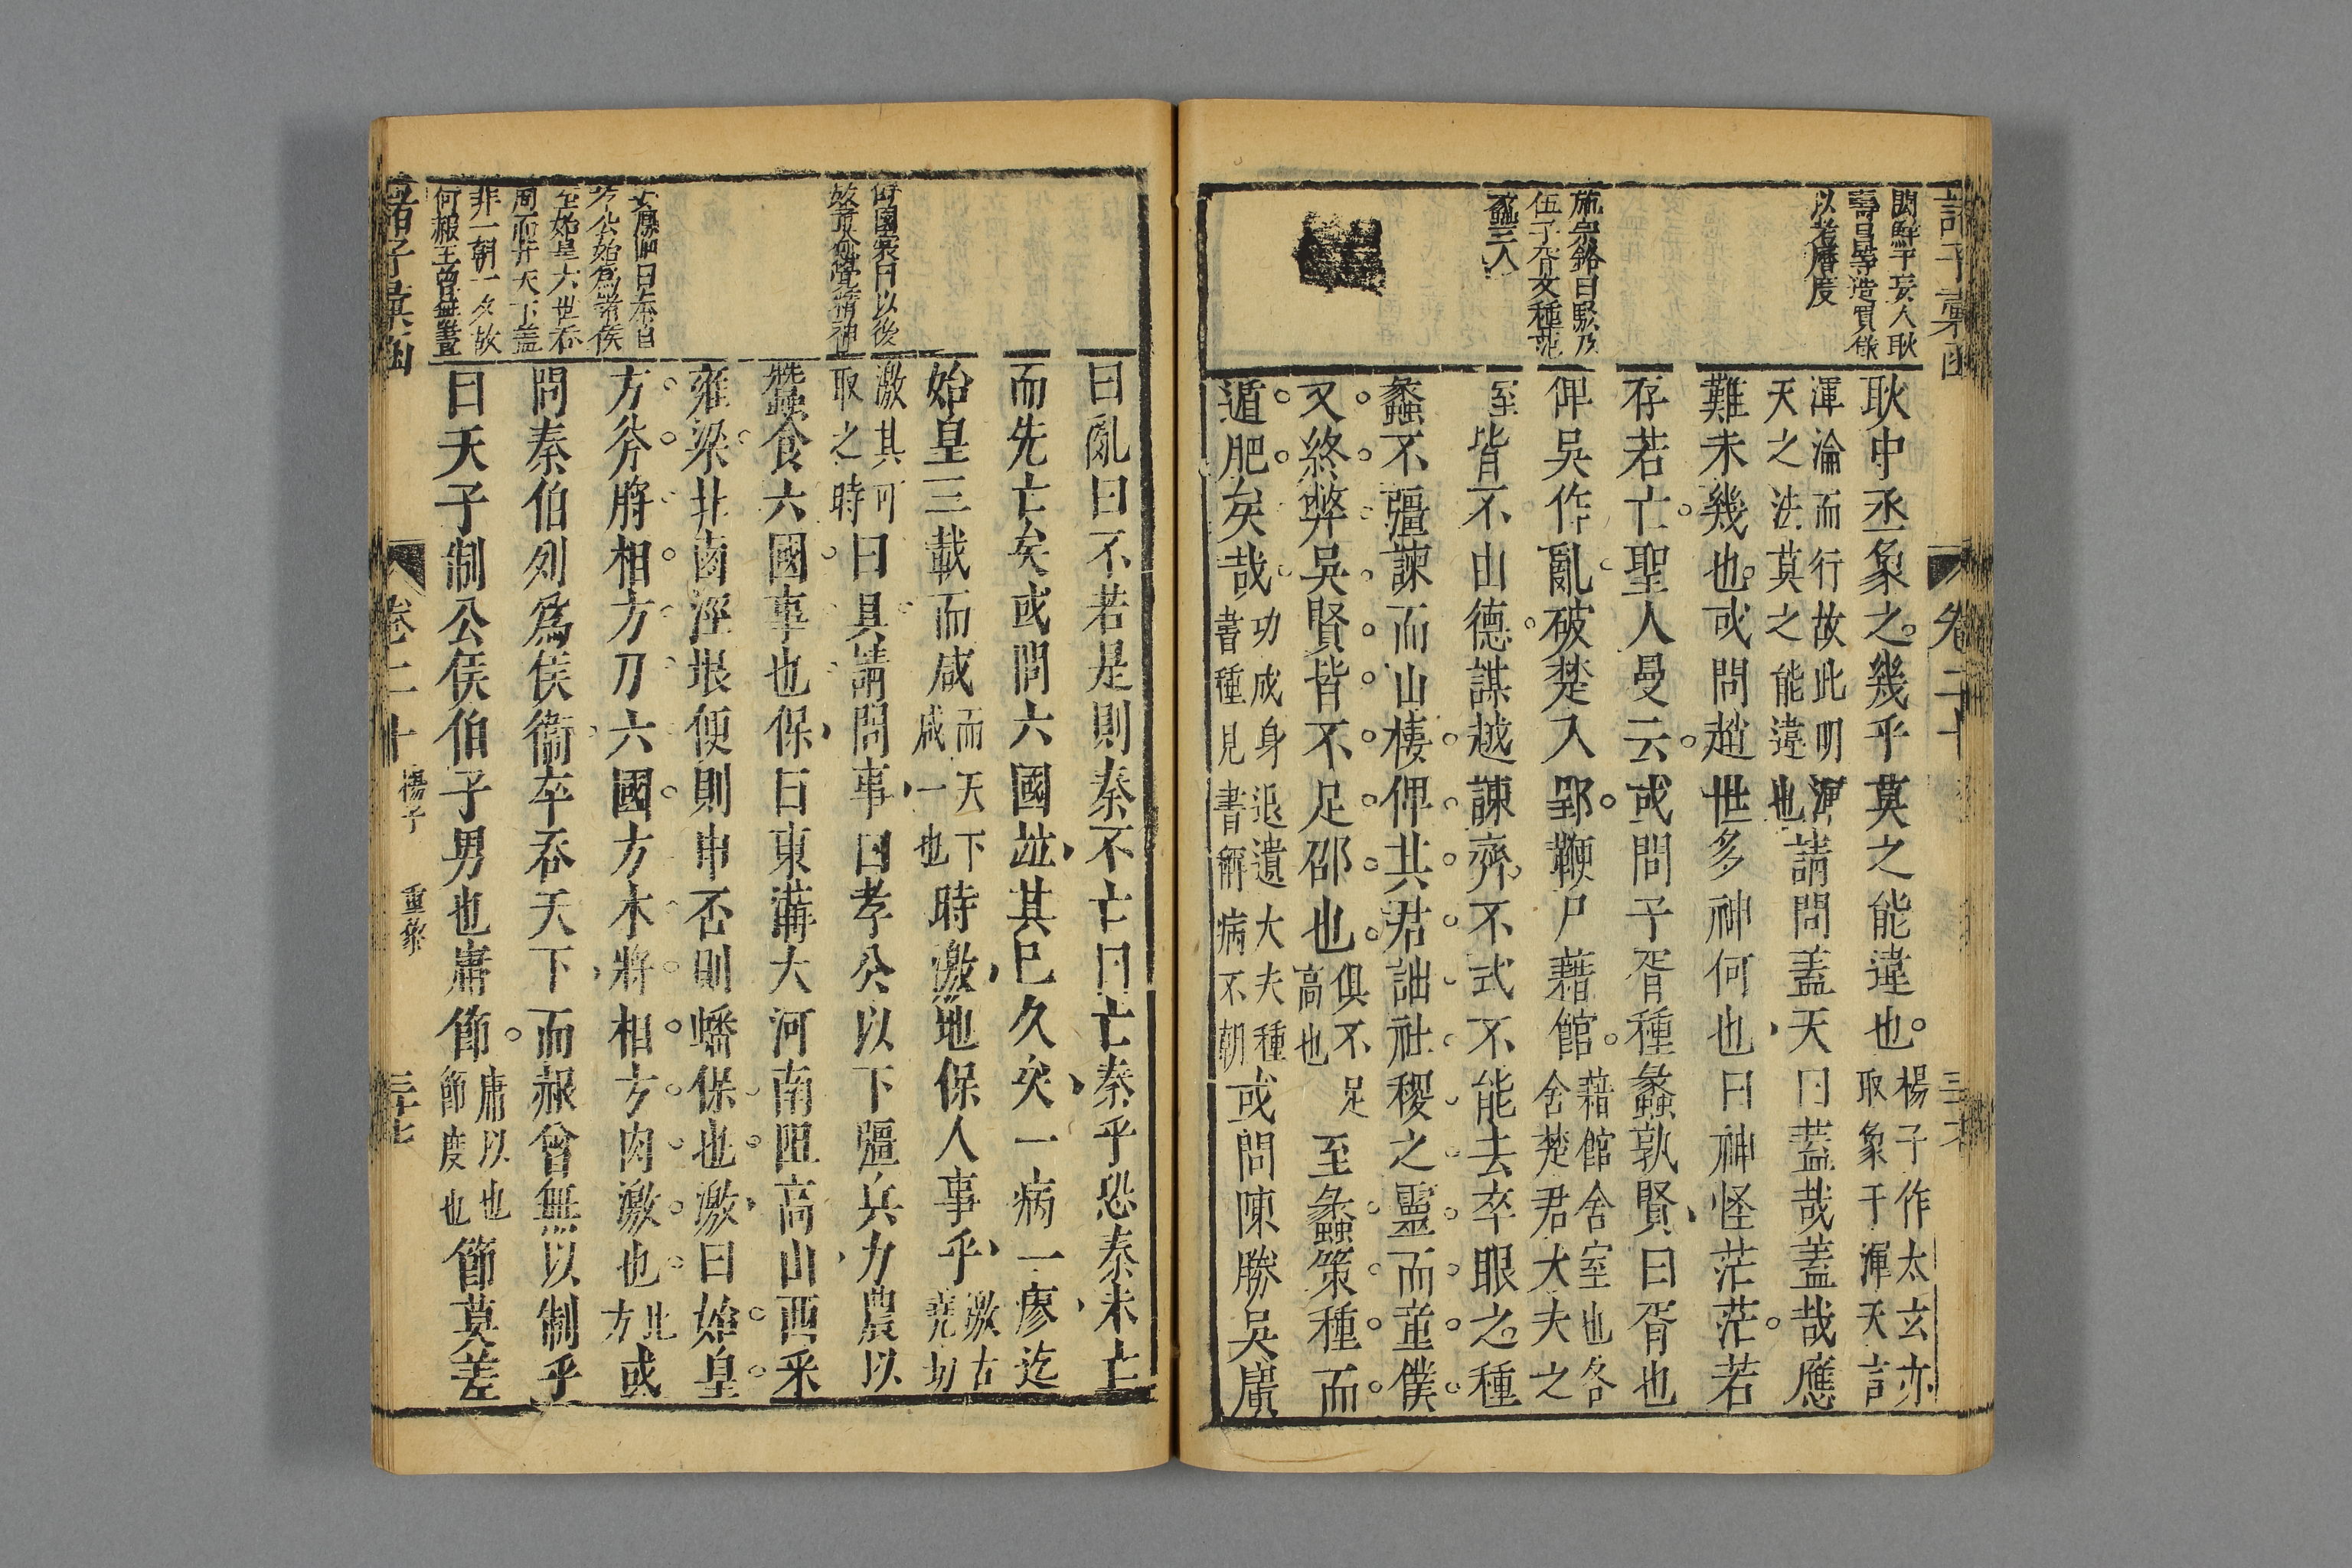 諸子彙函
卷二十
閎鮮于妄人耿
壽昌等造員儀
以考曆度
施宗銘曰駁乃
伍子胥文種范
蠡三人
耿中丞象之幾乎莫之能違也楊子作太玄亦取象于渾天言
渾淪而行故此明渾天之法莫之能違也請問蓋天曰蓋哉蓋哉應
難未幾也或問趙世多神何也曰神怪茫茫若
存若亡聖人曼云或問子胥種蠡孰賢曰胥也
俾吳作亂破楚入郢鞭尸藉館藉館舍室也各舍楚君大夫之
室皆不由德謀越諫齊不式不能去卒眼之種
蠡不彊諫而山棲俾其君詘社稷之靈而童僕
又終弊吳賢皆不足邵也俱不足高也至蠡策種而
遁肥矣哉功成身退遺大夫種書種見書稱病不朝或問陳勝吳廣
曰亂曰不若是則秦不亡曰亡秦乎恐秦未亡
而先亡矣或問六國並其已久矣一病一瘳迄
始皇三載而咸而天下咸一也時激地保人事乎激古堯切
激其可取之時曰具請問事曰孝公以下彊兵力農以
蠶食六國事也保曰東溝大河南阻高山西采
雍梁北鹵涇垠便則申否則蟠保也激曰始皇
方斧將相方刀六國方木將相方肉激也比方或
問秦伯列爲侯衞卒吞天下而赧曾無以制乎
曰天子制公侯伯子男也庸節庸以也節度也節莫差
何國裳曰以後
故意愈覺精神
安廉伯曰秦自
孝公始爲諸侯
至始皇六世吞
周而并天下蓋
非一朝一夕故
何赧王曾無畫
諸子彙函
卷二十
楊子
重黎